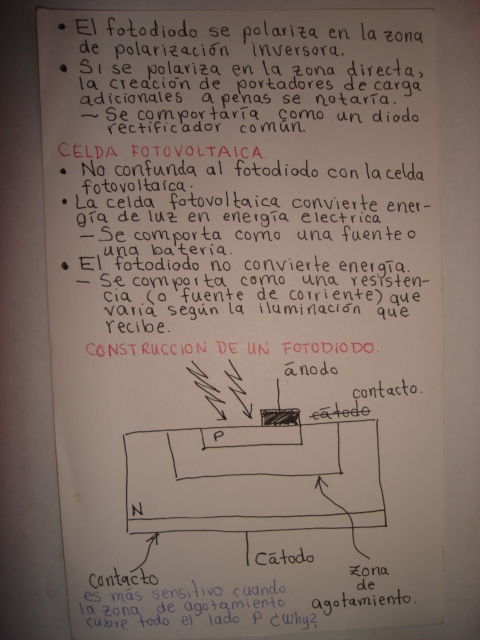 • El fotodiodo se polariza en la zona
de polarización inversora.
• Si se polariza en la zona directa,
la creación de portadores de carga
adicionales apenas se notaría.
– Se comportaría como un diodo
rectificador común.
CELDA FOTOVOLTAICA.
• No confunda al fotodiodo con la celda
fotovoltaica.
• La celda fotovoltaica convierte ener-
gía de luz en energía electrica
– Se comporta como una fuente o
una batería.
• El fotodiodo no convierte energía.
– Se comporta como una resisten-
cia (o fuente de corriente) que
varía según la iluminación que
recibe.
CONSTRUCCION DE UN FOTODIODO.
ánodo
contacto.
cátodo
P
N
Cátodo
Contacto
zona
de
agotamiento.
es más sensitivo cuando
la zona de agotamiento
cubre todo el lado P ¿Why?